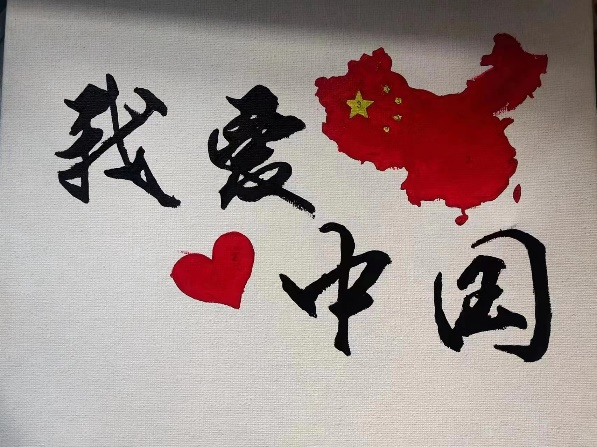 我爱
中国